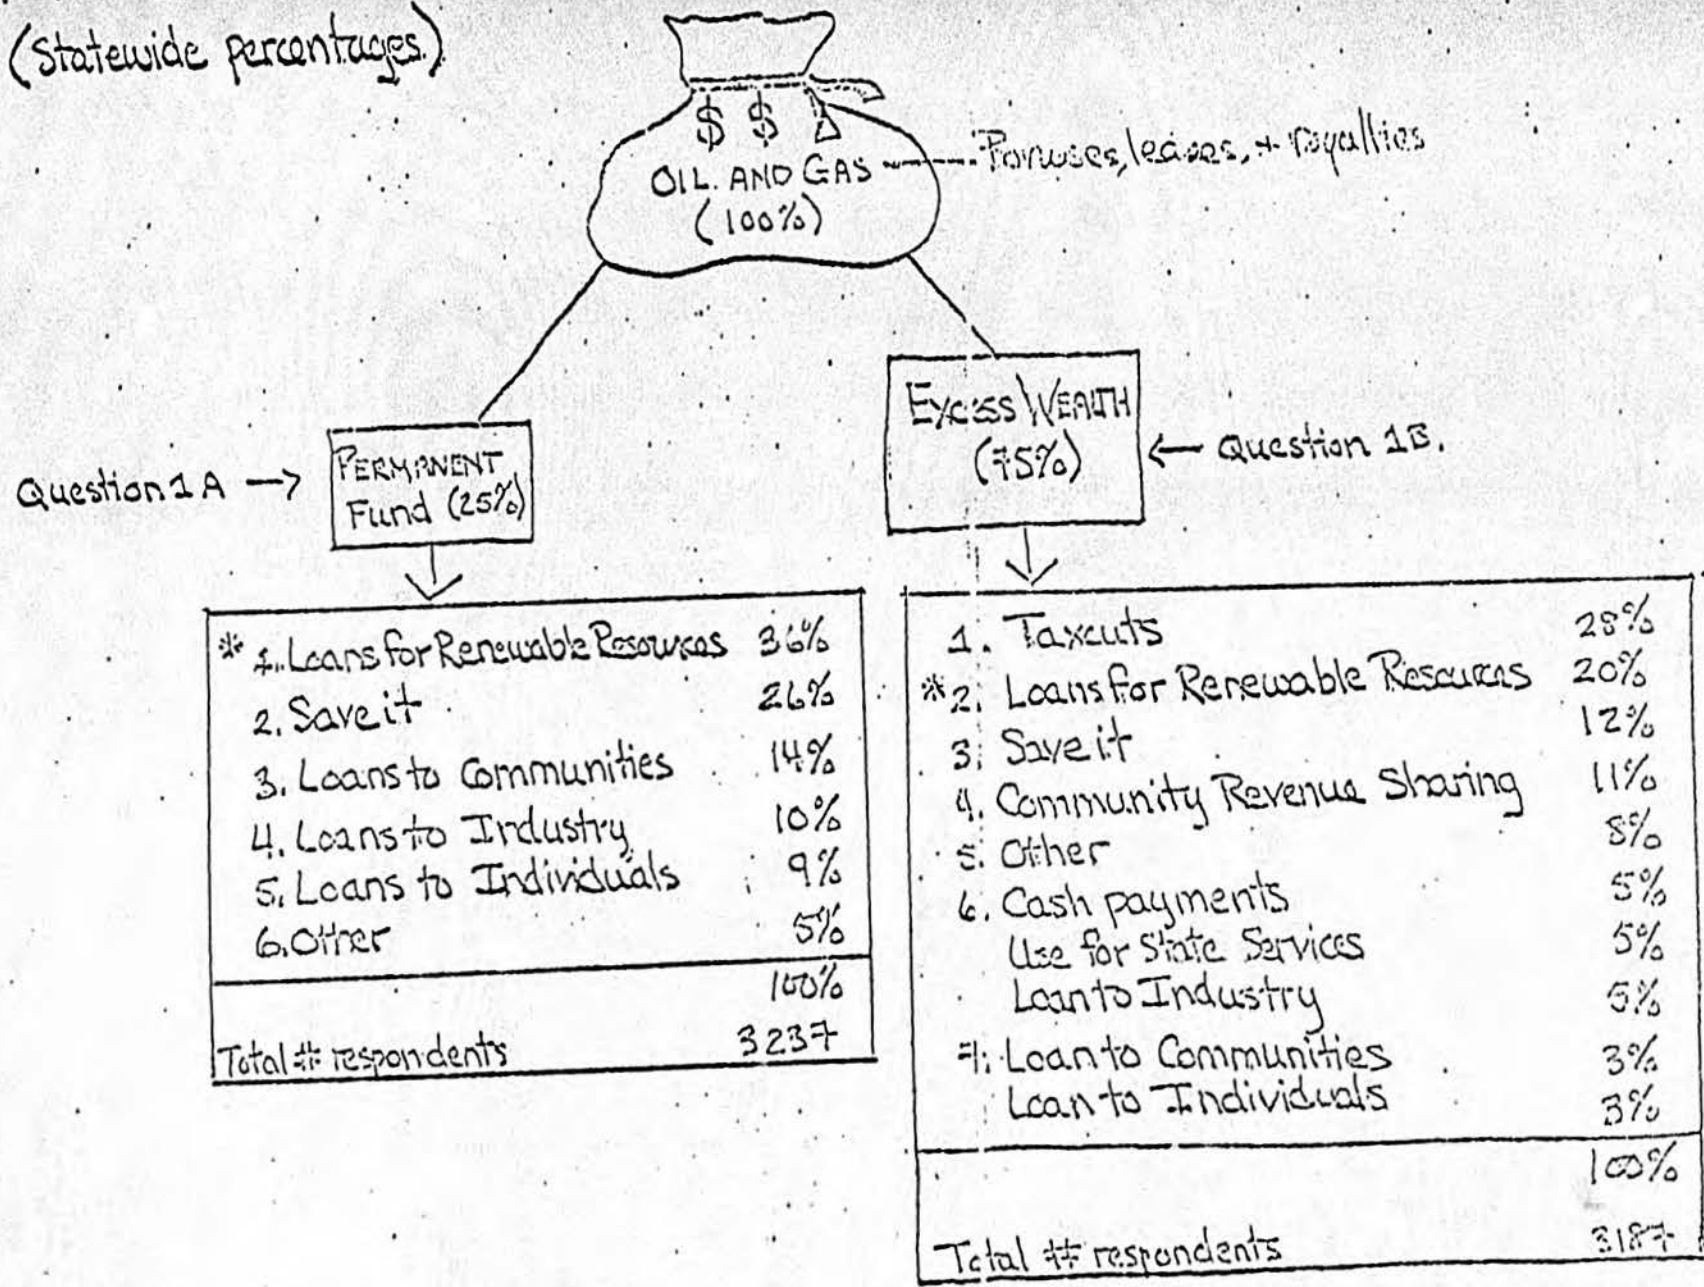 (Statewide percentages.)
$ $ $
OIL AND GAS
(100%)
Bonuses, leases, + royalties
Question 1A →
PERMANENT
Fund (25%)
EXCESS WEALTH
(75%)
← Question 1B.
* 1. Loans for Renewable Resources 36%
2. Save it 26%
3. Loans to Communities 14%
4. Loans to Industry 10%
5. Loans to Individuals 9%
6. Other 5%
100%
Total # respondents 3237
1. Taxcuts 28%
* 2. Loans for Renewable Resources 20%
3. Save it 12%
4. Community Revenue Sharing 11%
5. Other 8%
6. Cash payments 5%
Use for State Services 5%
Loan to Industry 5%
7. Loan to Communities 3%
Loan to Individuals 3%
100%
Total # respondents 3187